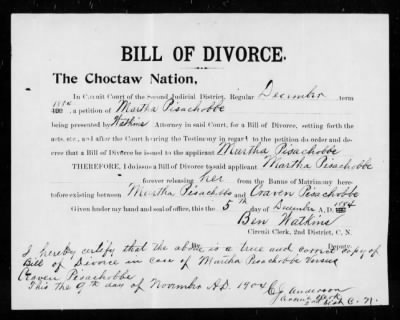 BILL OF DIVORCE.
The Choctaw Nation,
In Circuit Court of the Second Judicial District, Regular December term
1894, a petition of Martha Pisachobbe
being presented by Watkins Attorney in said Court, for a Bill of Divorce, setting forth the
acts, etc., and after the Court hearing the Testimony in regard to the petition do order and de-
cree that a Bill of Divorce be issued to the applicant Martha Pisachobbe
THEREFORE, I do issue a Bill of Divorce to said applicant Martha Pisachobbe
forever releasing her from the Banns of Matrimony here-
tofore existing between Martha Pisachobbe and Craven Pisachobbe
Given under my hand and seal of office, this the 5th day of December A.D. 1894
Ben Watkins
Circuit Clerk, 2nd District, C. N.
Deputy.
I hereby certify that the above is a true and correct copy of
Bill of Divorce in case of Martha Pisachobbe versus
Craven Pisachobbe
This the 9th day of November A.D. 1904
Anderson
C. N.